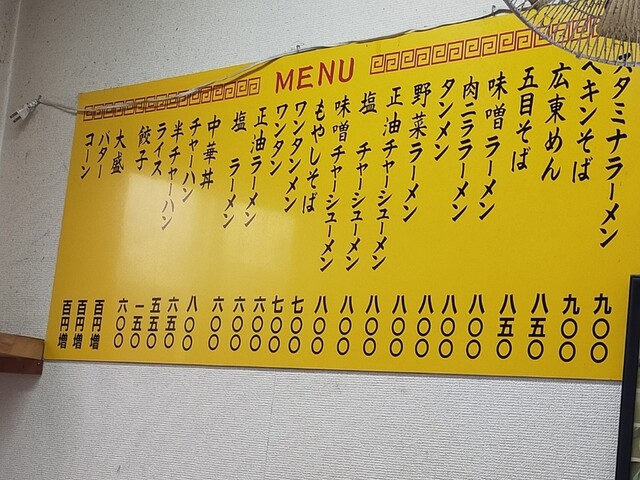 MENU
タミナラーメン 九〇〇
ペキンそば 九〇〇
広東めん 八五〇
五目そば 八五〇
味噌ラーメン 八〇〇
肉ニララーメン 八〇〇
タンメン 八〇〇
野菜ラーメン 八〇〇
正油チャーシューメン 八〇〇
塩チャーシューメン 八〇〇
味噌チャーシューメン 八〇〇
もやしそば 七〇〇
ワンタンメン 七〇〇
ワンタン 六〇〇
正油ラーメン 六〇〇
塩ラーメン 六〇〇
中華丼 八〇〇
チャーハン 六五〇
半チャーハン 五五〇
ライス 一五〇
餃子 六〇〇
大盛 百円増
バター 百円増
コーン 百円増